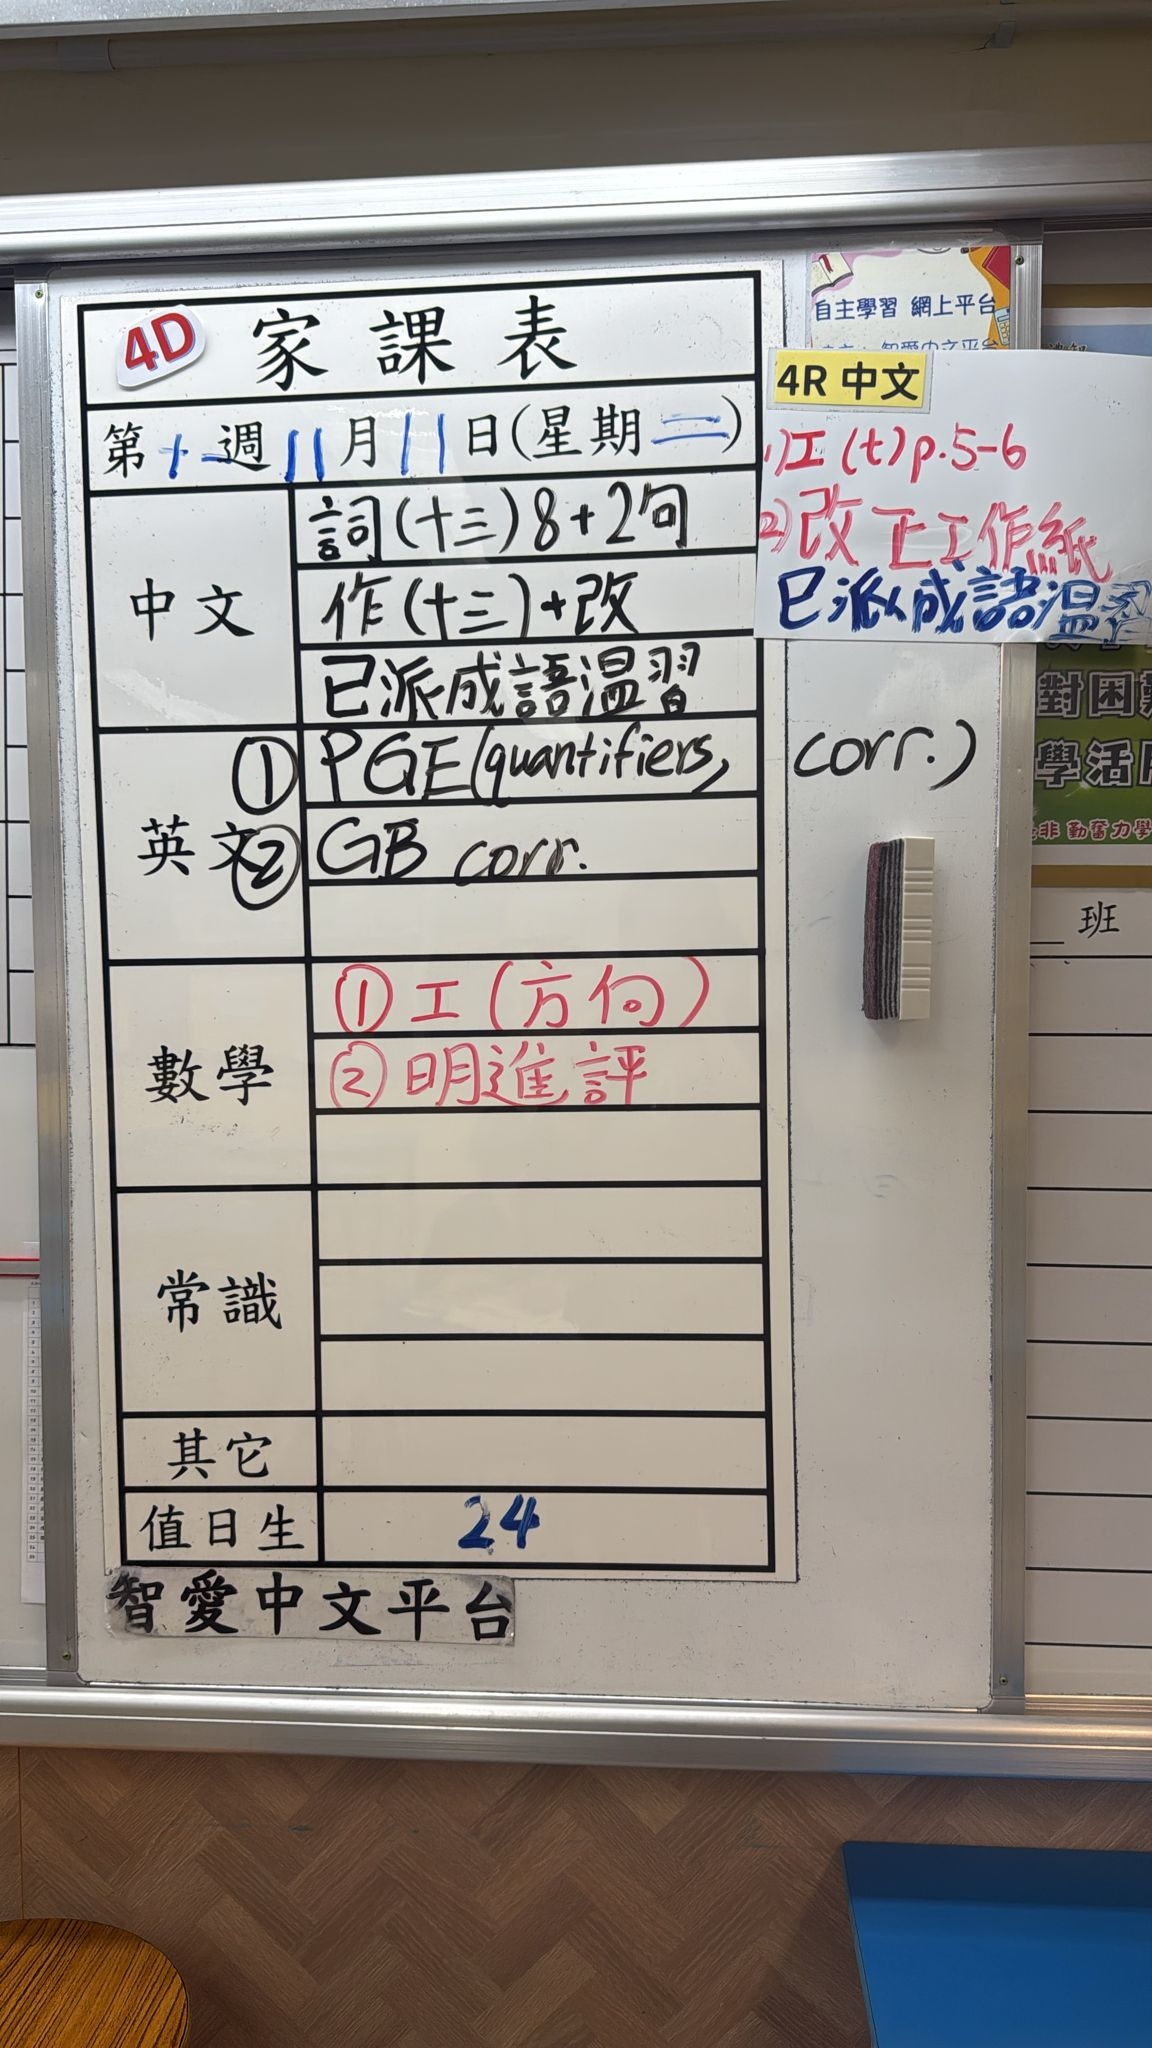 4D 家課表
第十一週11月11日(星期二)
中文
詞(十三)8+2句
作(十三)+改
已派成語温習
英文
① PGE(quantifiers, corr.)
② GB corr.
數學
① 工(方向)
② 明進評
常識
其它
值日生 24
智愛中文平台
自主學習 網上平台
智愛中文平台
4R 中文
1)工(t)p.5-6
2)改正工作紙
已派成語温習
對困
學活
非 勤奮力學
班